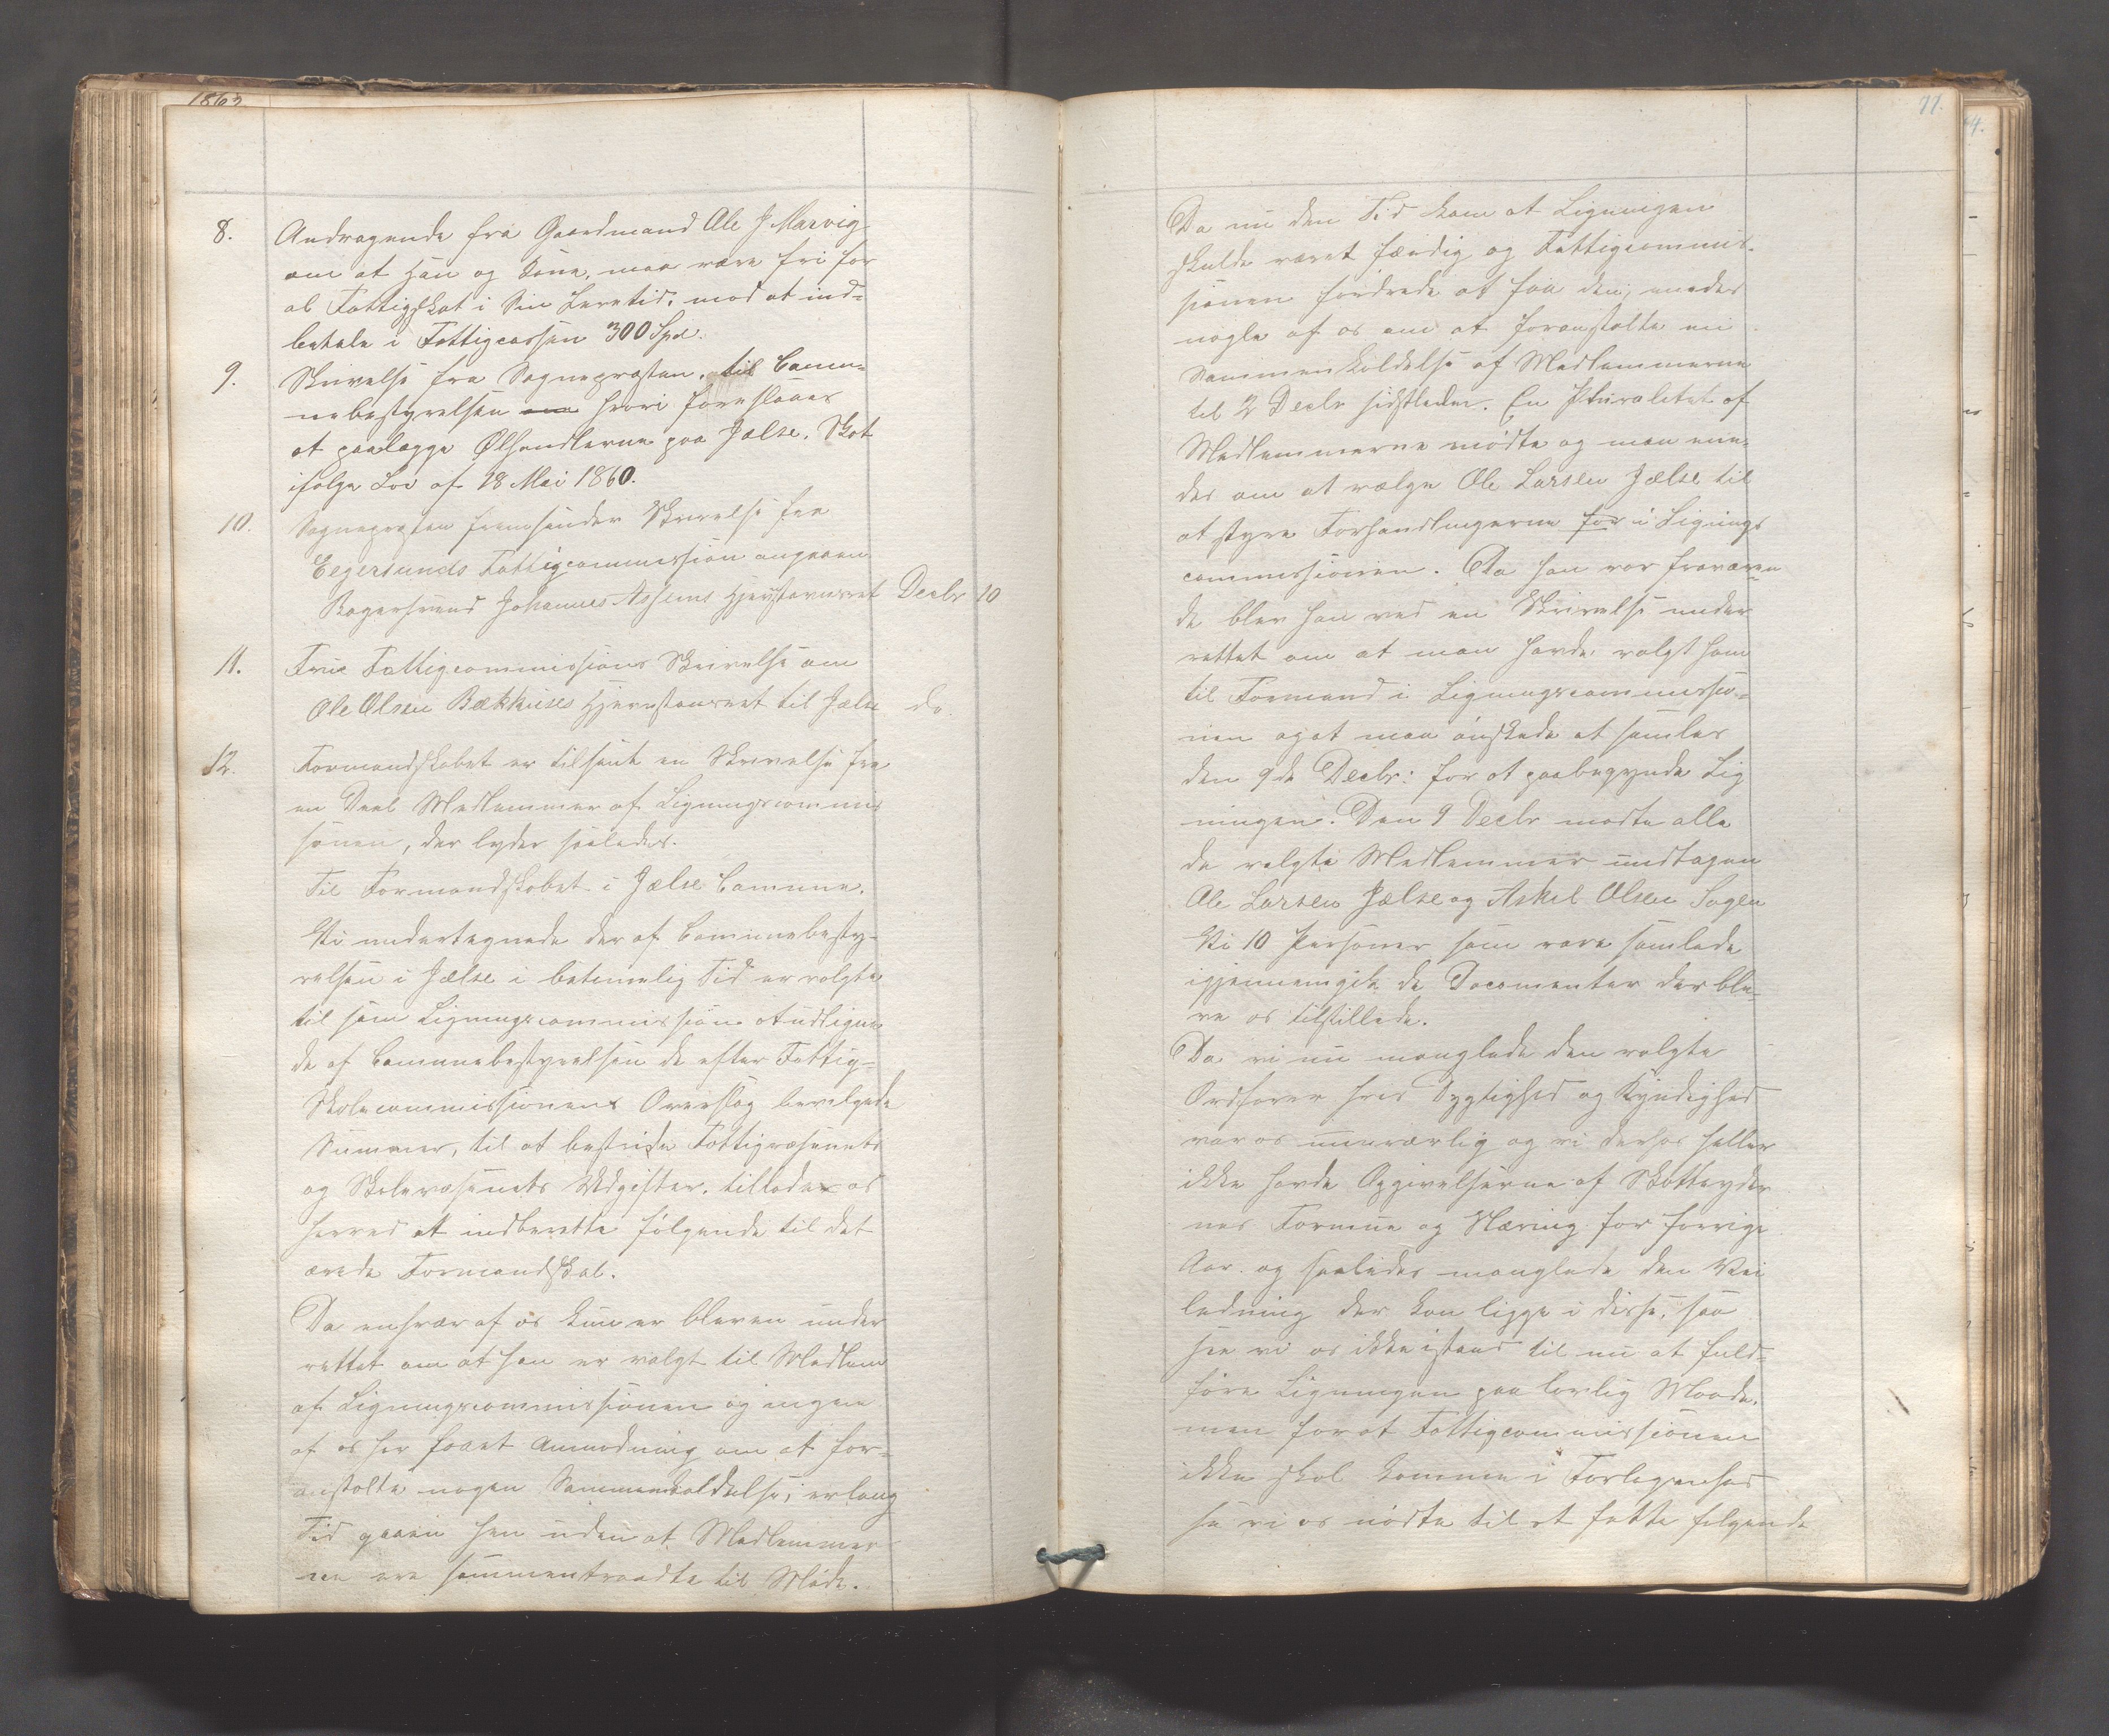 1863
8. Andragende fra Gaardmand Ole J Marvig
om at han og Kone, maa være fri for
al Fattigskat i Sin Levetid, mod at ind-
betale i Fattigcassen 300 Spd.
9. Skrivelse fra Sognepræsten, til Commu-
nebestyrelsen om hvori foreslaaes
at paalægge Ølhandlerne paa Jælse, Skat
ifølge Lov af 18 Mai 1860.
10. Sognepræsten fremsender Skrivelse fra
Egersunds Fattigcommission angaaen
Johannes Hjemstavnsret Decbr 10
11. Fattigcommissions Skrivelse om
Ole Olsen Bækhuses Hjemstavnsret til Jælse do.
12. Formandskabet er tilsendt en Skrivelse fra
en Deel Medlemmer af Ligningscommis
sionen, der lyder saaledes.
Til Formandskabet i Jælse Commune.
Vi undertegnede der af Communebesty-
relsen i Jælse i betimelig Tid er valgte
til som Ligningscommission at udligne
de af Communebestyrelsen de efter Fattig-
Skolecommissionens Overslag bevilgede
Summer, til at bestride Fattigvæsenets
og Skolevæsenets Udgifter, tillader os
herved at indberette følgende til det
ærede Formandskab.
Da enhver af os kun er bleven under
rettet om at han er valgt til Medlem
af Ligningscommissionen og ingen
af os har faaet Anmodning om at for-
anstalte nogen Sammenkaldelse, er lang
Tid gaaen hen uden at Medlemmer
ne ere sammentraadte til Møde.
77.
Da nu den Tid kom at Ligningen
skulde været færdig og Fattigcommis-
sionen fordrede at faa den, enedes
nogle af os om at foranstalte en
Sammenkaldelse af Medlemmerne
til 2 Decbr sidstleden. En Pluralitet af
Medlemmerne mødte og man ene-
des om at vælge Ole Larsen Jælse til
at styre Forhandlingerne for i Lignings
commissionen. Da han var fraværen
de blev han ved en Skrivelse under
rettet om at man havde valgt ham
til Formand i Ligningscommissio-
nen og at man ønskede at samles
den 9de Decbr: for at paabegynde Lig
ningen. Den 9 Decbr mødte alle
de valgte Medlemmer undtagen
Ole Larsen Jælse og Askel Olsen
Vi 10 Personer som vare samlede
igjennemgik de Documenter der ble-
ve os tilstillede.
Da vi nu manglede den valgte
Ordfører hvis Dygtighed og Kyndighed
var os undværlig og vi derhos heller
ikke havde Opgivelserne af Skatteyder
nes Formue og Næring for forrige
Aar. og saaledes manglede den Vei
ledning der kan ligge i disse, saa
see vi os ikke istand til nu at fuld-
føre Ligningen paa lovlig Maade.
men for at Fattigcommissionen
ikke skal komme i Forlegenhed
se vi os nødte til at fatte følgende